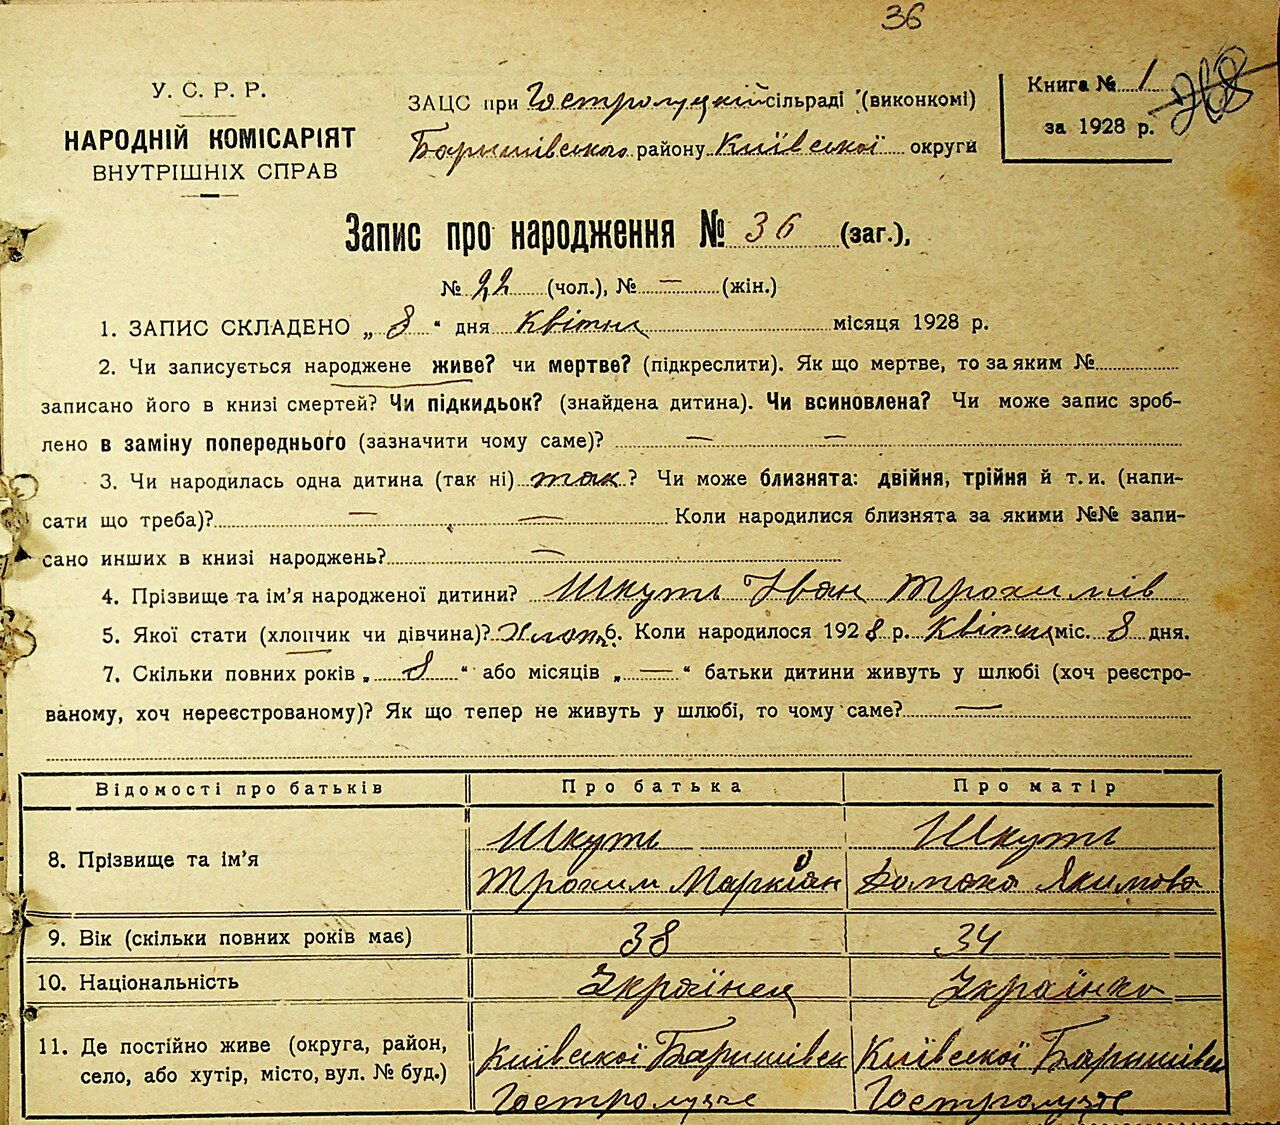 36
У. С. Р. Р.
НАРОДНІЙ КОМІСАРІЯТ
ВНУТРІШНІХ СПРАВ
ЗАЦС при Гостролуцкій сільраді (виконкомі)
Баришівського району Київської округи
Книга № 1
за 1928 р.
Запис про народження № 36 (заг.),
№ 22 (чол.), № — (жін.)
1. ЗАПИС СКЛАДЕНО „ 8 “ дня квітня місяця 1928 р.
2. Чи записується народжене живе? чи мертве? (підкреслити). Як що мертве, то за яким №
записано його в книзі смертей? Чи підкидьок? (знайдена дитина). Чи всиновлена? Чи може запис зроб-
лено в заміну попереднього (зазначити чому саме)? — —
3. Чи народилась одна дитина (так ні) так? Чи може близнята: двійня, трійня й т. и. (напи-
сати що треба)? — — Коли народилися близнята за якими №№ запи-
сано инших в книзі народжень? —
4. Прізвище та ім'я народженої дитини? Шкуть Іван Трохимів
5. Якої стати (хлопчик чи дівчина)? Хлоп. 6. Коли народилося 1928 р. Квітня міс. 8 дня.
7. Скільки повних років „ 8 “ або місяців „ — “ батьки дитини живуть у шлюбі (хоч реєстро-
ваному, хоч нереєстрованому)? Як що тепер не живуть у шлюбі, то чому саме? —
Відомості про батьків Про батька Про матір
8. Прізвище та ім'я Шкуть Шкуть
Трохим Маркіян Домаха Якимова
9. Вік (скільки повних років має) 38 34
10. Національність Українец Українка
11. Де постійно живе (округа, район, Київської Баришівск Київської Баришівск
село, або хутір, місто, вул. № буд.) Гостролуччє Гостролуччє